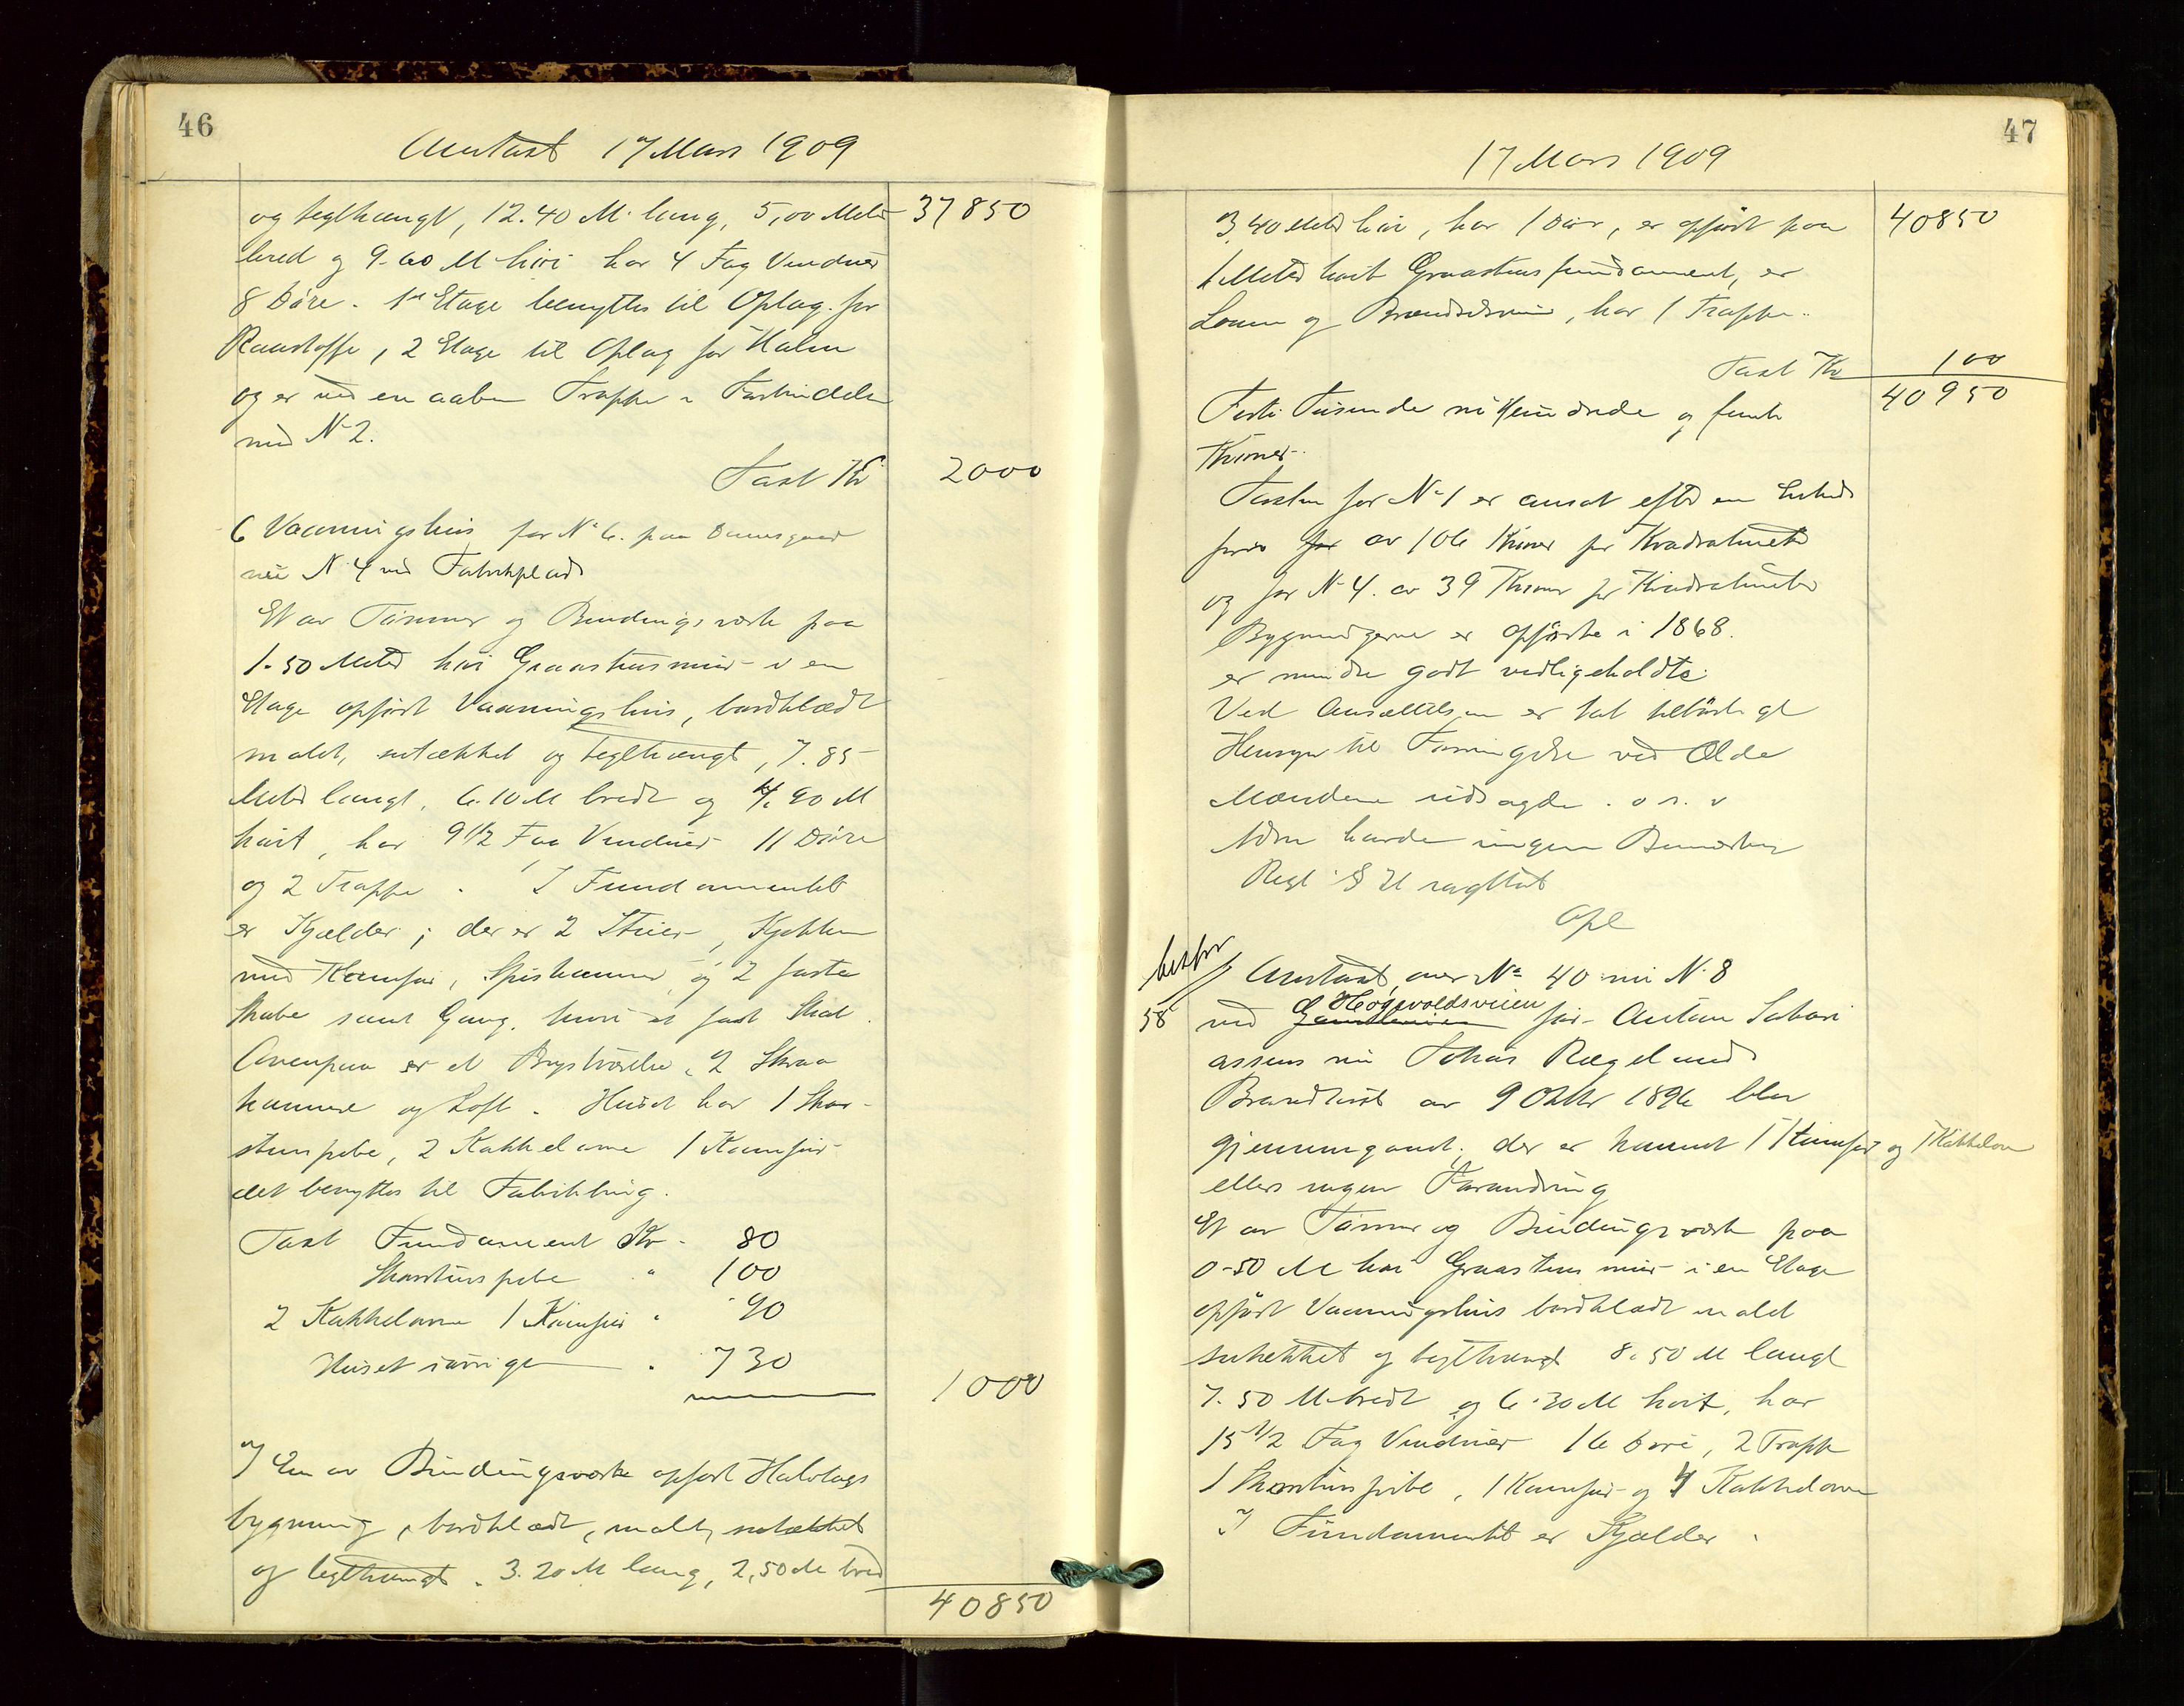 46
Omtaxt 17 Mars 1909
og teglhængt, 12.40 M. lang, 5,00 Meter 37850
bred og 9.60 M høi har 4 Fag Vinduer
8 Døre. 1st Etage benyttes til Oplag for
Raastoffe, 2 Etage til Oplag for Halm
og er ved en aaben Trappe i Forbindelse
med No 2.
Taxt Kr 2000
6 Vaaningshus for No 6. paa Damsgaard
nu N 4 ved Fabrikplads
Et av Tømmer og Bindingsværk paa
1.50 Meter høi Graastensmur i en
Etage opført Vaaningshus, bordklædt
malt, sutækket og teglhængt, 7.85
Meter langt, 6.10 M bredt og 4.90 M
høit, har 9 1/2 Fag Vinduer 11 Døre
og 2 Trapper. I Fundamentet
er Kjælder; der er 2 Stuer, Kjøkken
med Komfur, Spiskammer og 2 faste
Skabe samt Gang, hvori et fast Skab.
Ovenpaa er et Brystværelse, 2 Skraa
kammere og Loft. Huset har 1 Skor-
stenspibe, 2 Kakkelovne 1 Komfur
det benyttes til Fabrikbrug.
Taxt Fundament Kr. 80
Skorstenspibe " 100
2 Kakkelovne 1 Komfur " 90
Huset iøvrigt " 730
1000
7 En av Bindingsværk opført Halvtags
bygning, bordklædt, malt, sutækket
og teglhængt. 3.20 M lang, 2,50 M bred
40850
47
17 Mars 1909
3,40 Meter høi, har 1 Dør, er opført paa 40850
1 Meter høit Graastensfundament, er
og, har 1 Trappe.
Taxt Kr 100
Forti Tusinde nihundrede og femti 40950
Kroner.
Taxten for No 1 er ansat efter en Enheds
pris for av 106 Kroner pr Kvadratmeter
og for N 4. av 39 Kroner pr Kvadratmeter
Bygningerne er opførte i 1868.
er mindre godt vedligeholdte.
Ved Ansættelsen er tat tilbørligt
Hensyn til Forringelse ved Ælde
Mændene udsagde. o s. v
havde ingen Bemærkn
Regl § 21 iagttat
Opl
bestyr
58
Omtaxt over No 40 nu N. 8
ved Høgevoldsveien for Anton
assens nu Rægelands
Brandtaxt av 9 Oktbr 1896 blev
gjennemgaaet. der er kommet 1 Komfur og 1 Kakkelovn
ellers ingen Forandring
Et av Tømmer og Bindingsværk paa
0.50 M høi Graastensmur i en Etage
opført Vaaningshus bordklædt malt
sutækket og teglhængt 8.50 M langt
7.50 M. bredt og 6.30 M høit, har
15 1/2 Fag Vinduer 16 Døre, 2 Trapper
1 Skorstenspibe, 1 Komfur og 4 Kakkelovne
I Fundamentet er Kjælder.